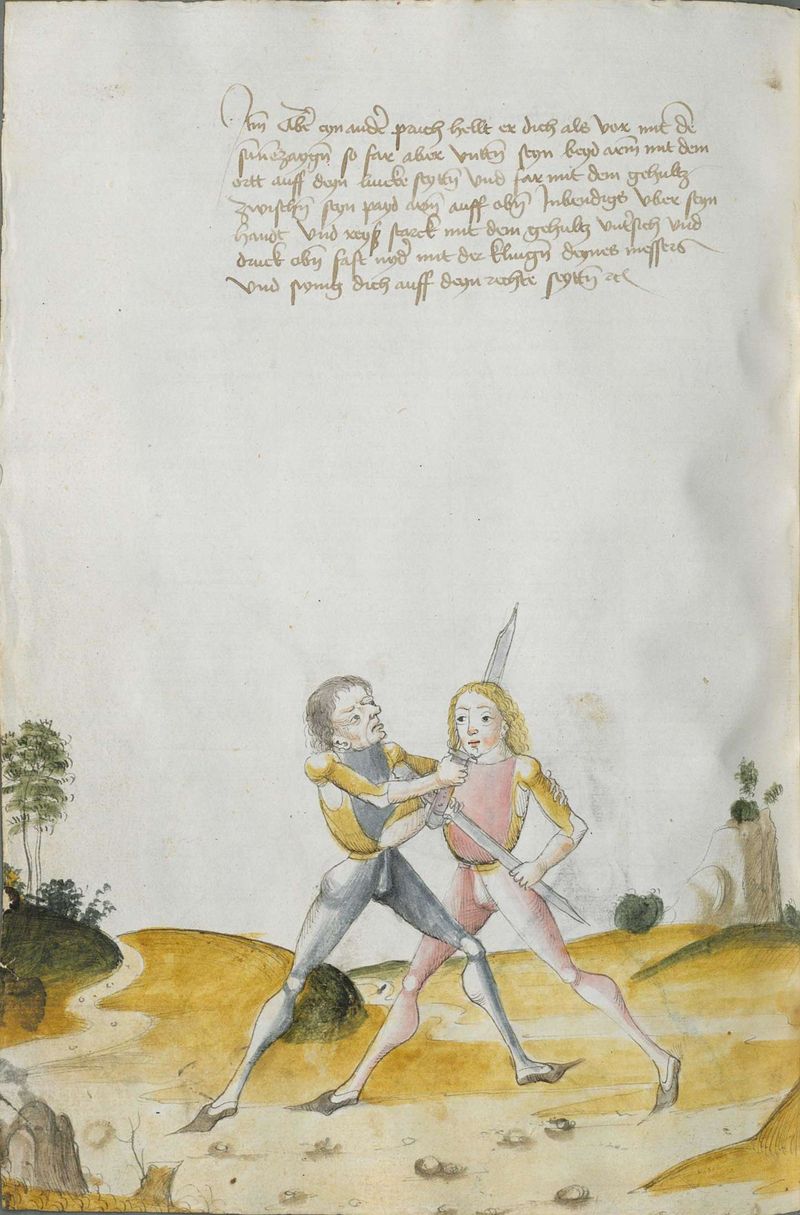 Itm Aber eyn ander pruch helt er dich als vor mit de
sunezaygn so far aber vnttn seyn beyd arm mit dem
ortt auff deyn lincke seyttn vnd far mit dem gehultz
zwischn seyn payd arm auff obn Inbendigs vber seyn
handt vnd reyß starck mit dem gehultz vntersich vnd
druck obn fast nyder mit der klingn deynes messers
vnd spring dich auff deyn rechte seyttn rc